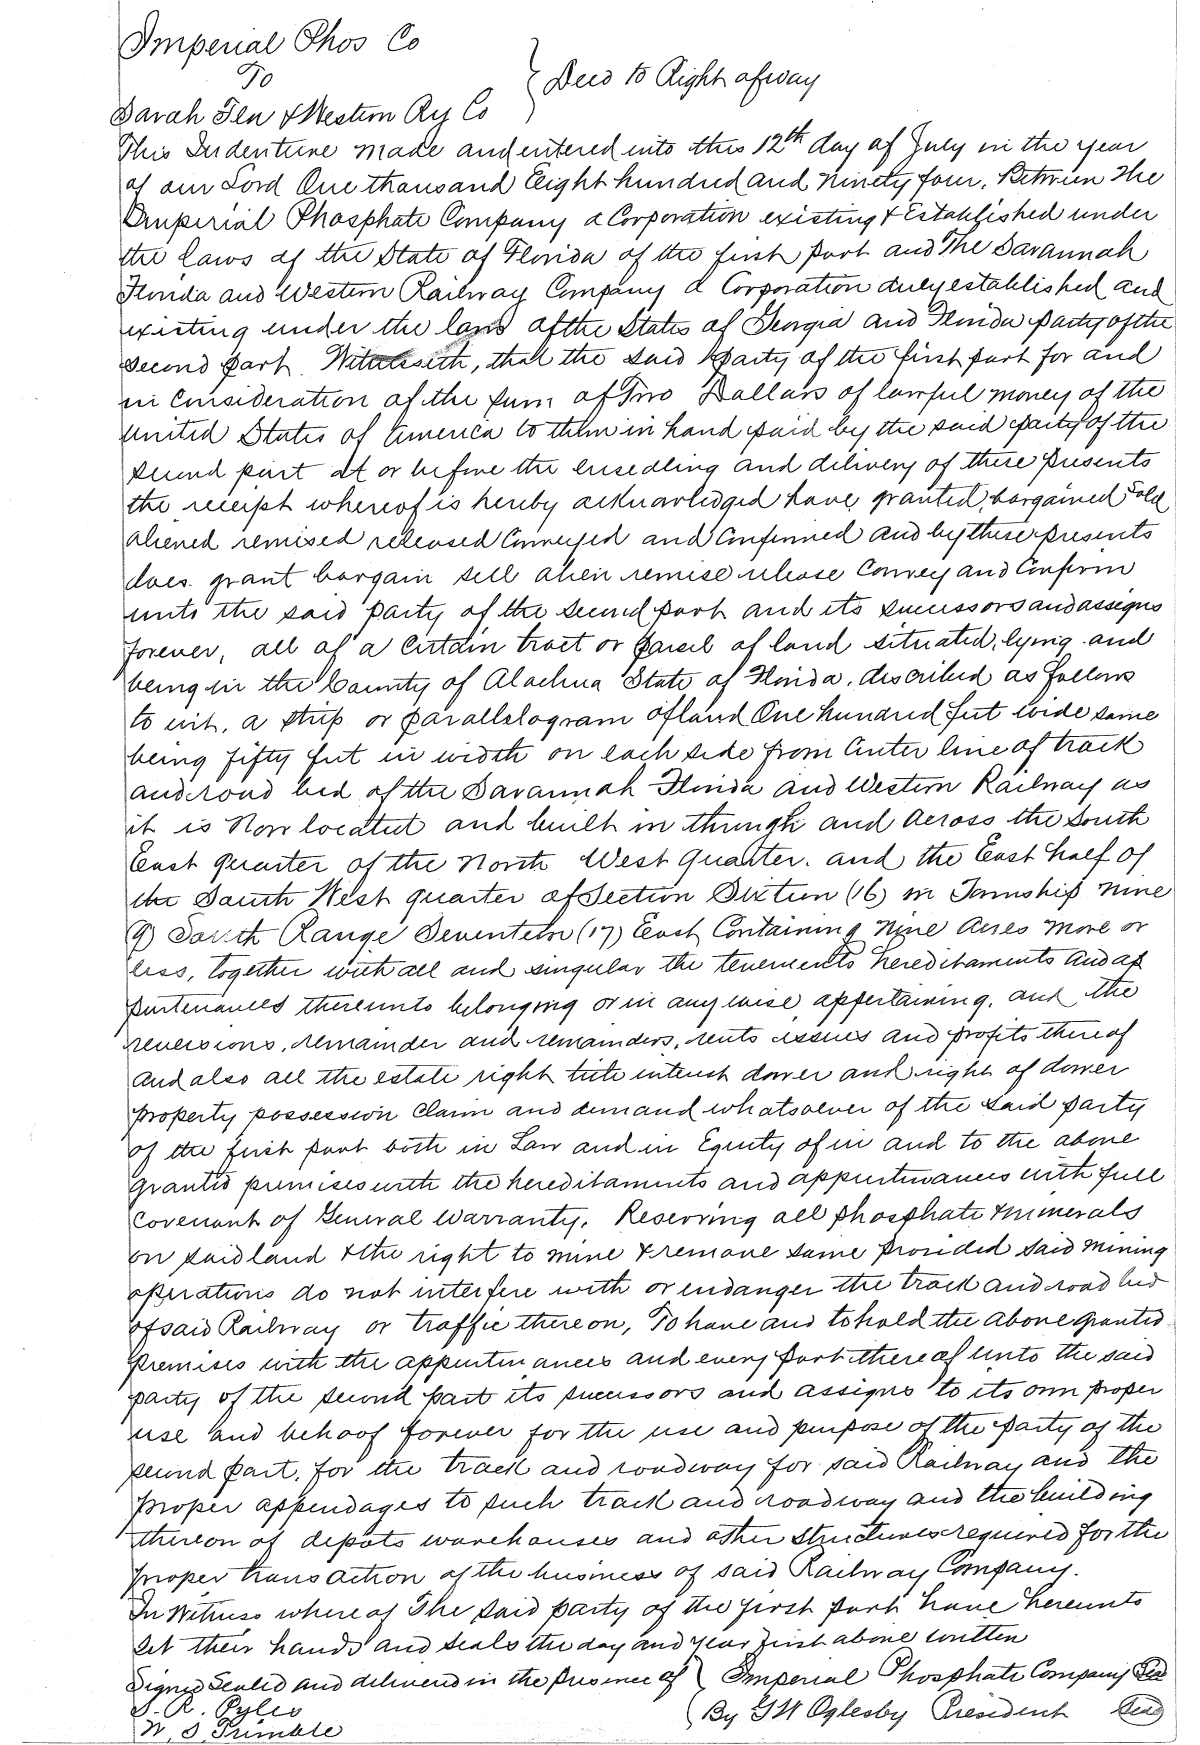 Imperial Phos Co
To
Deed to Right of way
Savah Fla & Western Ry Co
This Indenture made and entered into this 12th day of July in the year
of our Lord One thousand Eight hundred and ninety four, Between The
Imperial Phosphate Company a Corporation existing & Established under
the laws of the State of Florida of the first part and The Savannah
Florida and Western Railway Company a Corporation duly established and
existing under the laws of the States of Georgia and Florida party of the
second part. Witnesseth, that the said party of the first part for and
in Consideration of the sum of Two Dollars of lawful money of the
United States of America to them in hand paid by the said party of the
second part at or before the ensealing and delivery of these presents
the receipt whereof is hereby acknowledged have granted, bargained Sold
aliened remised released Conveyed and Confirmed and by these presents
does grant bargain sell alien remise release Convey and Confirm
unto the said party of the second part and its successors and assigns
forever, all of a Certain tract or parcel of land situated, lying and
being in the County of Alachua State of Florida, described as follows
to wit, a strip or parallelogram of land One hundred feet wide same
being fifty feet in width on each side from Center line of track
and road bed of the Savannah Florida and Western Railway as
it is Now located and built in through and across the South
East quarter of the North West quarter. and the East half of
the South West quarter of Section Sixteen (16) in Township nine
9) South Range Seventeen (17) East Containing Nine Acres more or
less, together with all and singular the tenements hereditaments and ap
purtenances thereunto belonging or in any wise appertaining, and the
reversions, remainder and remainders, rents issues and profits thereof
and also all the estate right title interest dower and right of dower
property possession Claim and demand whatsoever of the said party
of the first part both in Law and in Equity of in and to the above
granted premises with the hereditaments and appurtenances with full
Covenant of General Warranty. Reserving all phosphate & minerals
on said land & the right to mine & remove same provided said mining
operations do not interfere with or endanger the track and road bed
of said Railway or traffic thereon, To have and to hold the above granted
premises with the appurtenances and every part thereof unto the said
party of the second part its successors and assigns to its own proper
use and behoof forever for the use and purpose of the party of the
second part, for the track and roadway for said Railway and the
proper appendages to such track and roadway and the building
thereon of depots warehouses and other structures required for the
proper transaction of the business of said Railway Company.
In Witness whereof The said party of the first part have hereunto
set their hands and seals the day and year first above written
Signed Sealed and delivered in the presence of Imperial Phosphate Company Seal
S. R. Pyles By G W Oglesby President Seal
W. S. Trimble